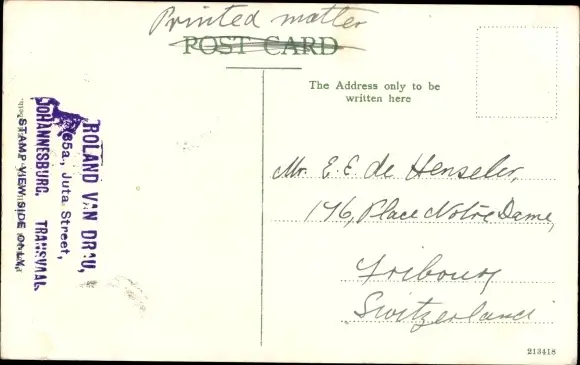 Printed matter
POST CARD
The Address only to be
written here
ROLAND VAN DRAU,
65a, Juta Street,
JOHANNESBURG. TRANSVAAL
STAMP VIEW SIDE ONLY.
Mr. E. E. de Henseler,
176, Place Notre Dame,
Fribourg
Switzerland
213418